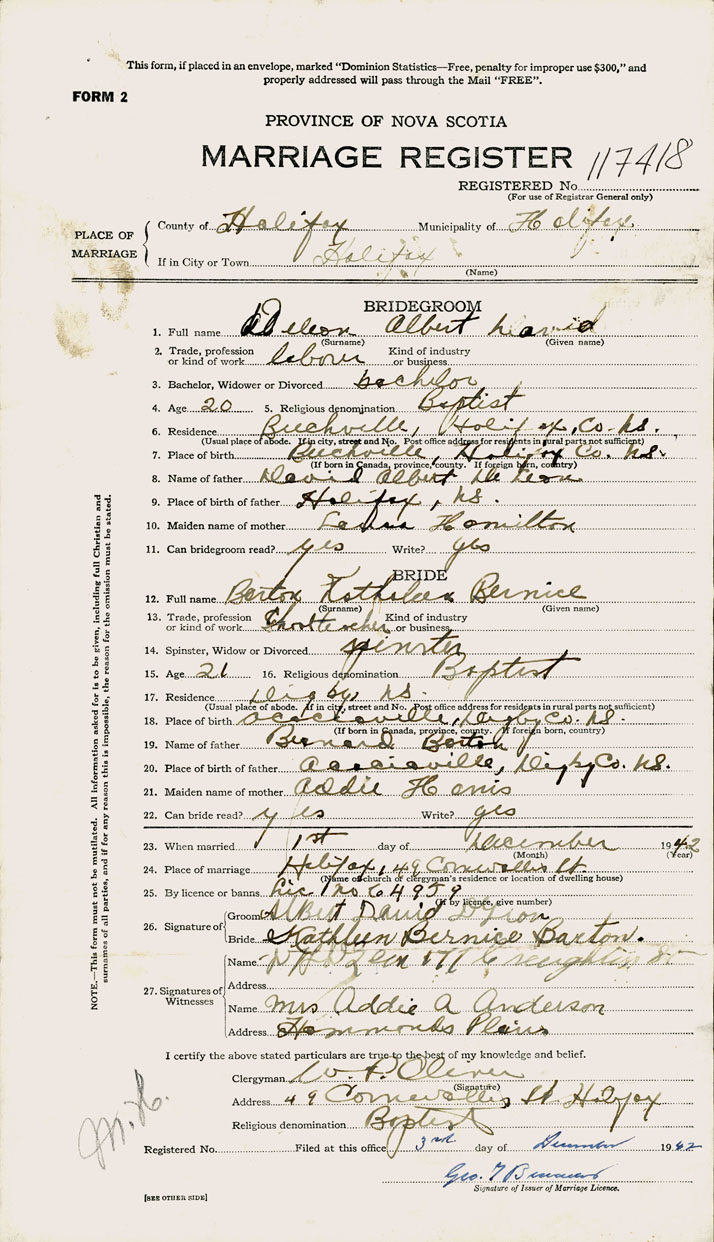 This form, if placed in an envelope, marked "Dominion Statistics—Free, penalty for improper use $300," and
properly addressed will pass through the Mail "FREE".
FORM 2
PROVINCE OF NOVA SCOTIA
MARRIAGE REGISTER
117418
REGISTERED No.
(For use of Registrar General only)
PLACE OF MARRIAGE
County of Halifax Municipality of Halifax
If in City or Town Halifax
(Name)
BRIDEGROOM
1. Full name DeLeon Albert David
(Surname) (Given name)
2. Trade, profession or kind of work labour Kind of industry or business
3. Bachelor, Widower or Divorced bachelor
4. Age 20 5. Religious denomination Baptist
6. Residence Beechville, Halifax, Co. NS.
(Usual place of abode. If in city, street and No. Post office address for residents in rural parts not sufficient)
7. Place of birth Beechville, Halifax Co. NS.
(If born in Canada, province, county. If foreign born, country)
8. Name of father David Albert De Leon
9. Place of birth of father Halifax, NS.
10. Maiden name of mother Hamilton
11. Can bridegroom read? yes Write? yes
BRIDE
12. Full name Barton Kathleen Bernice
(Surname) (Given name)
13. Trade, profession or kind of work Schoolteacher Kind of industry or business
14. Spinster, Widow or Divorced spinster
15. Age 21 16. Religious denomination Baptist
17. Residence Digby, NS.
(Usual place of abode. If in city, street and No. Post office address for residents in rural parts not sufficient)
18. Place of birth Acaciaville, Digby Co. NS.
(If born in Canada, province, county. If foreign born, country)
19. Name of father Bernard Barton
20. Place of birth of father Acaciaville, Digby Co. NS.
21. Maiden name of mother Addie
22. Can bride read? yes Write? yes
23. When married 1st day of December 1942
(Month) (Year)
24. Place of marriage Halifax, 49 Cornwallis St.
(Name of church or clergyman's residence or location of dwelling house)
25. By licence or banns Lic. No 64959
(If by licence, give number)
26. Signature of
Groom Albert David
Bride Kathleen Bernice Barton.
27. Signatures of Witnesses
Name 177 Creighton St
Address
Name Mrs Addie A Anderson
Address Hammonds Plains
I certify the above stated particulars are true to the best of my knowledge and belief.
Clergyman W. P. Oliver
(Signature)
Address 49 Cornwallis St Halifax
Religious denomination Baptist
Registered No. Filed at this office 3rd day of December 1942
Geo. T
Signature of Issuer of Marriage Licence.
[SEE OTHER SIDE]
NOTE.—This form must not be mutilated. All information asked for is to be given, including full Christian and
surnames of all parties, and if for any reason this is impossible, the reason for the omission must be stated.